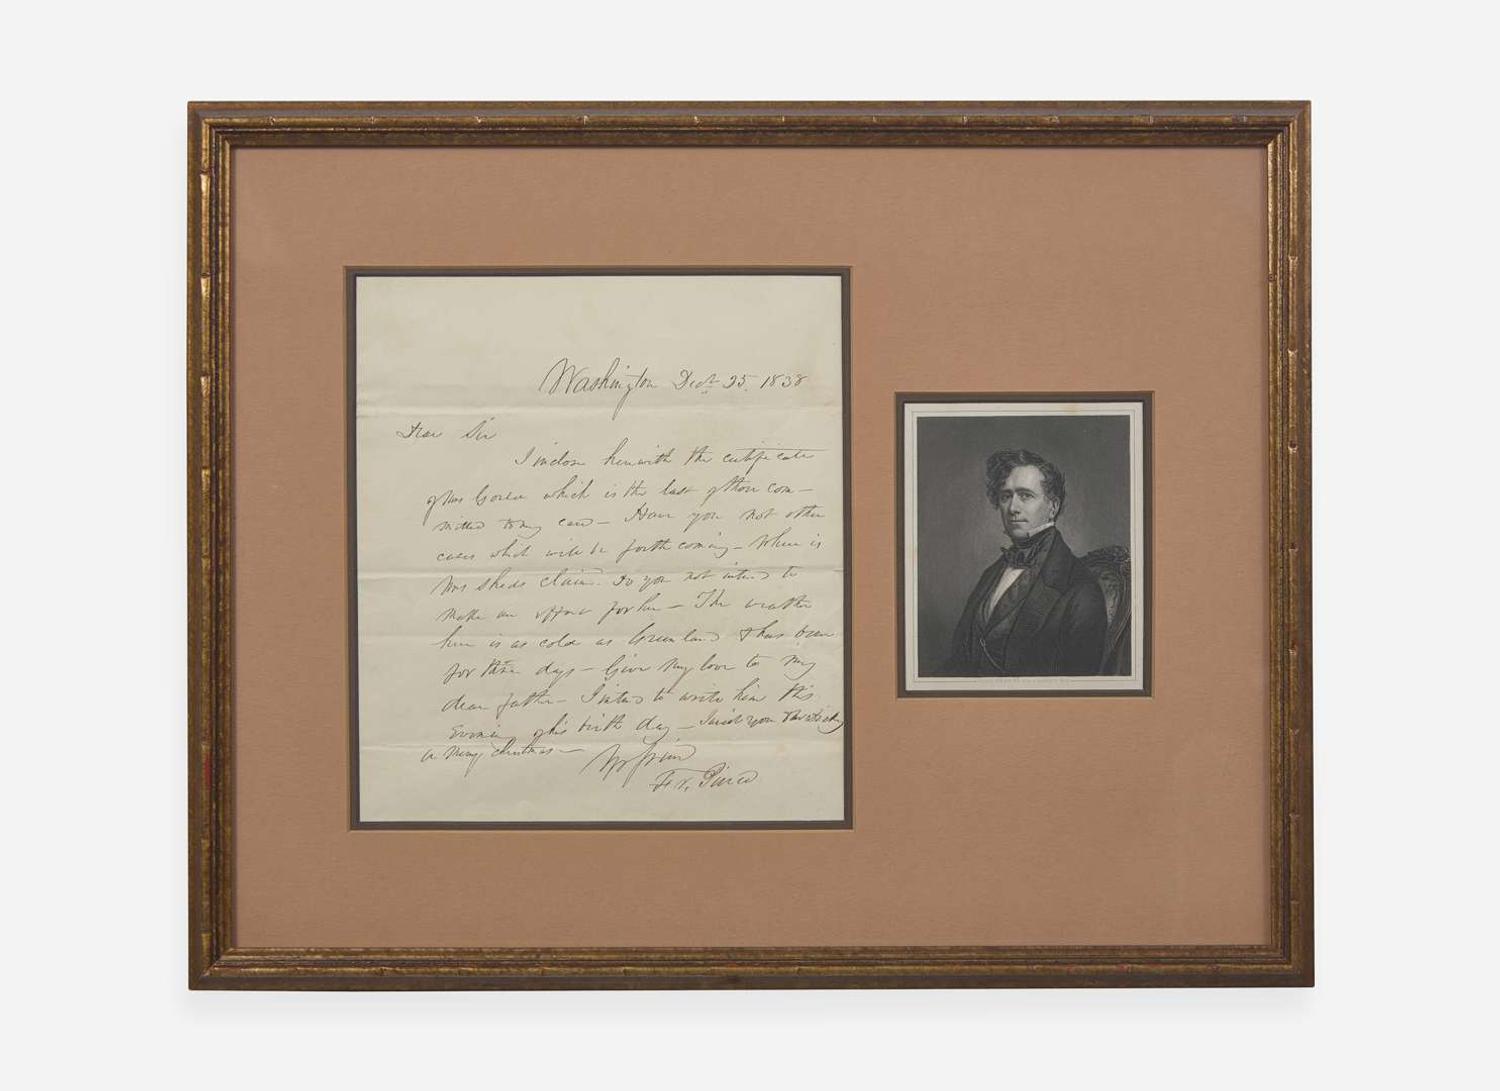 Washington Decr 25. 1838
Dear Sir
I inclose herewith the certificate
of Mrs which is the last of those com-
mitted to my care - Have you not other
cases which will be forth coming - Where is
Mrs Sheds claim. Do you not intend to
make an effort for her - The weather
here is as cold as Greenland & has been
for three days - Give my love to my
dear father - I intend to write him this
Evening of his birth day - I wish you
a merry christmas -
Yr friend
Fr. Pierce